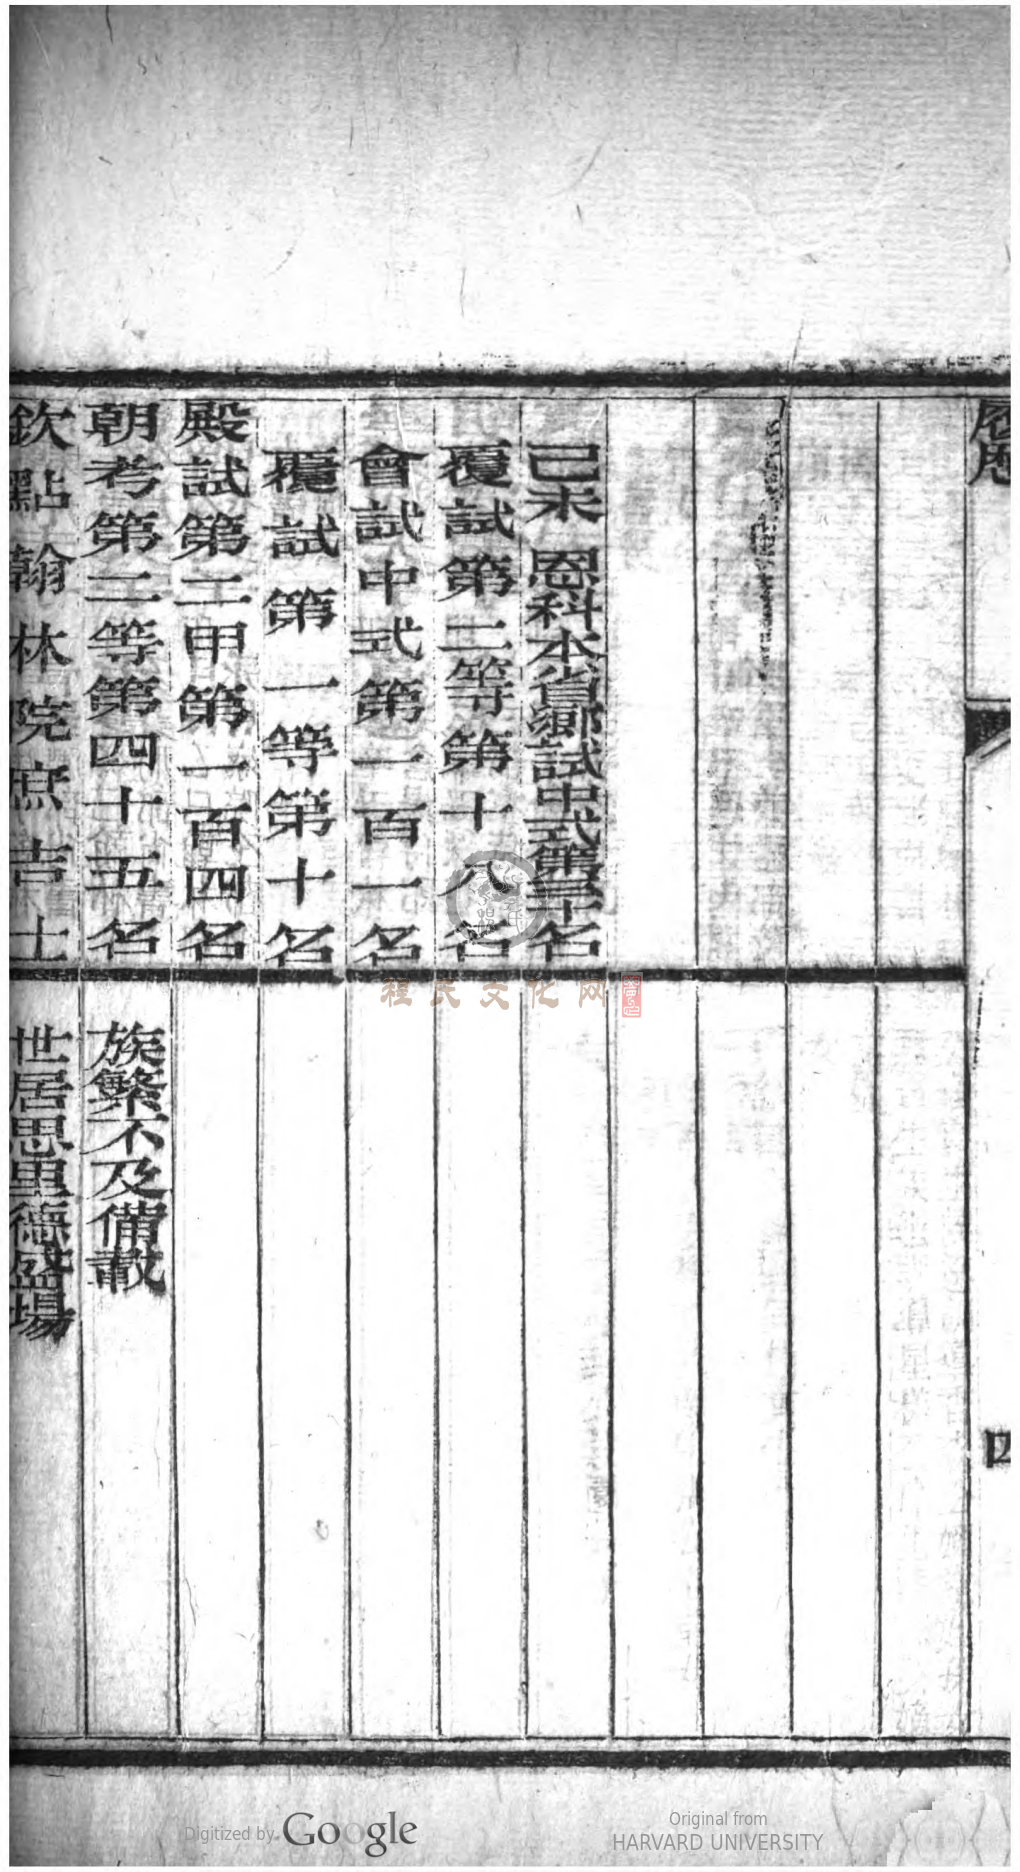 己未 恩科本省鄉試中式第三十名
覆試第二等第十八名
會試中式第一百一名
覆試第一等第十名
殿試第二甲第一百四名
朝考第二等第四十五名
欽點翰林院庶吉士
族繁不及備載
世居思里德盛場
四
程氏文化网
Digitized by Google
Original from
HARVARD UNIVERSITY